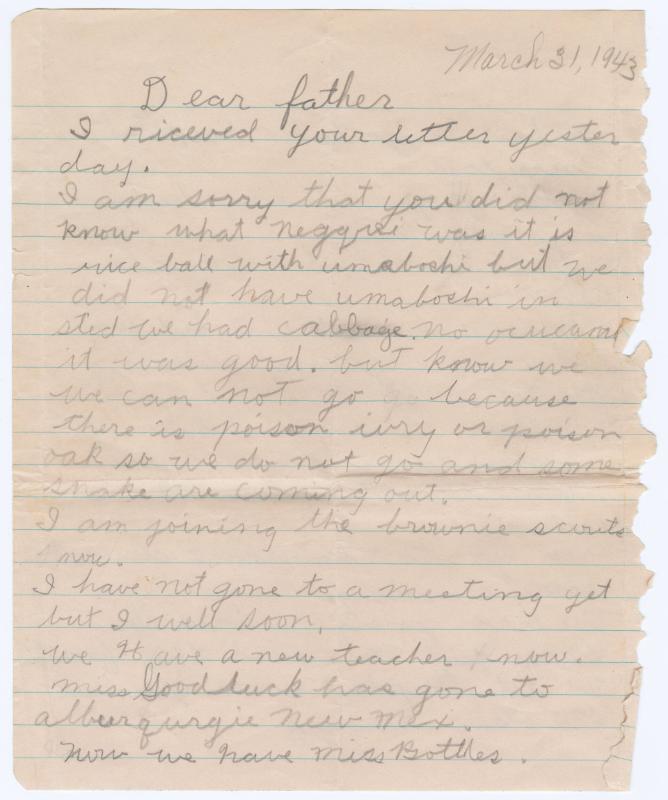 March 31, 1943
Dear father
I riceved your letter yester
day.
I am sorry that you did not
know what neggri was it is
rice ball with umaboshi but we
did not have umaboshi in
sted we had cabbage. no
it was good. but know we
we can not go go because
there is poison ivry or poison
oak so we do not go and some
snake are coming out.
I am joining the brownie scouts
now.
I have not gone to a meeting yet
but I well soon.
we Have a new teacher now.
miss Goodluck has gone to
alburqurgie New Mex.
Now we have Miss Bottles.